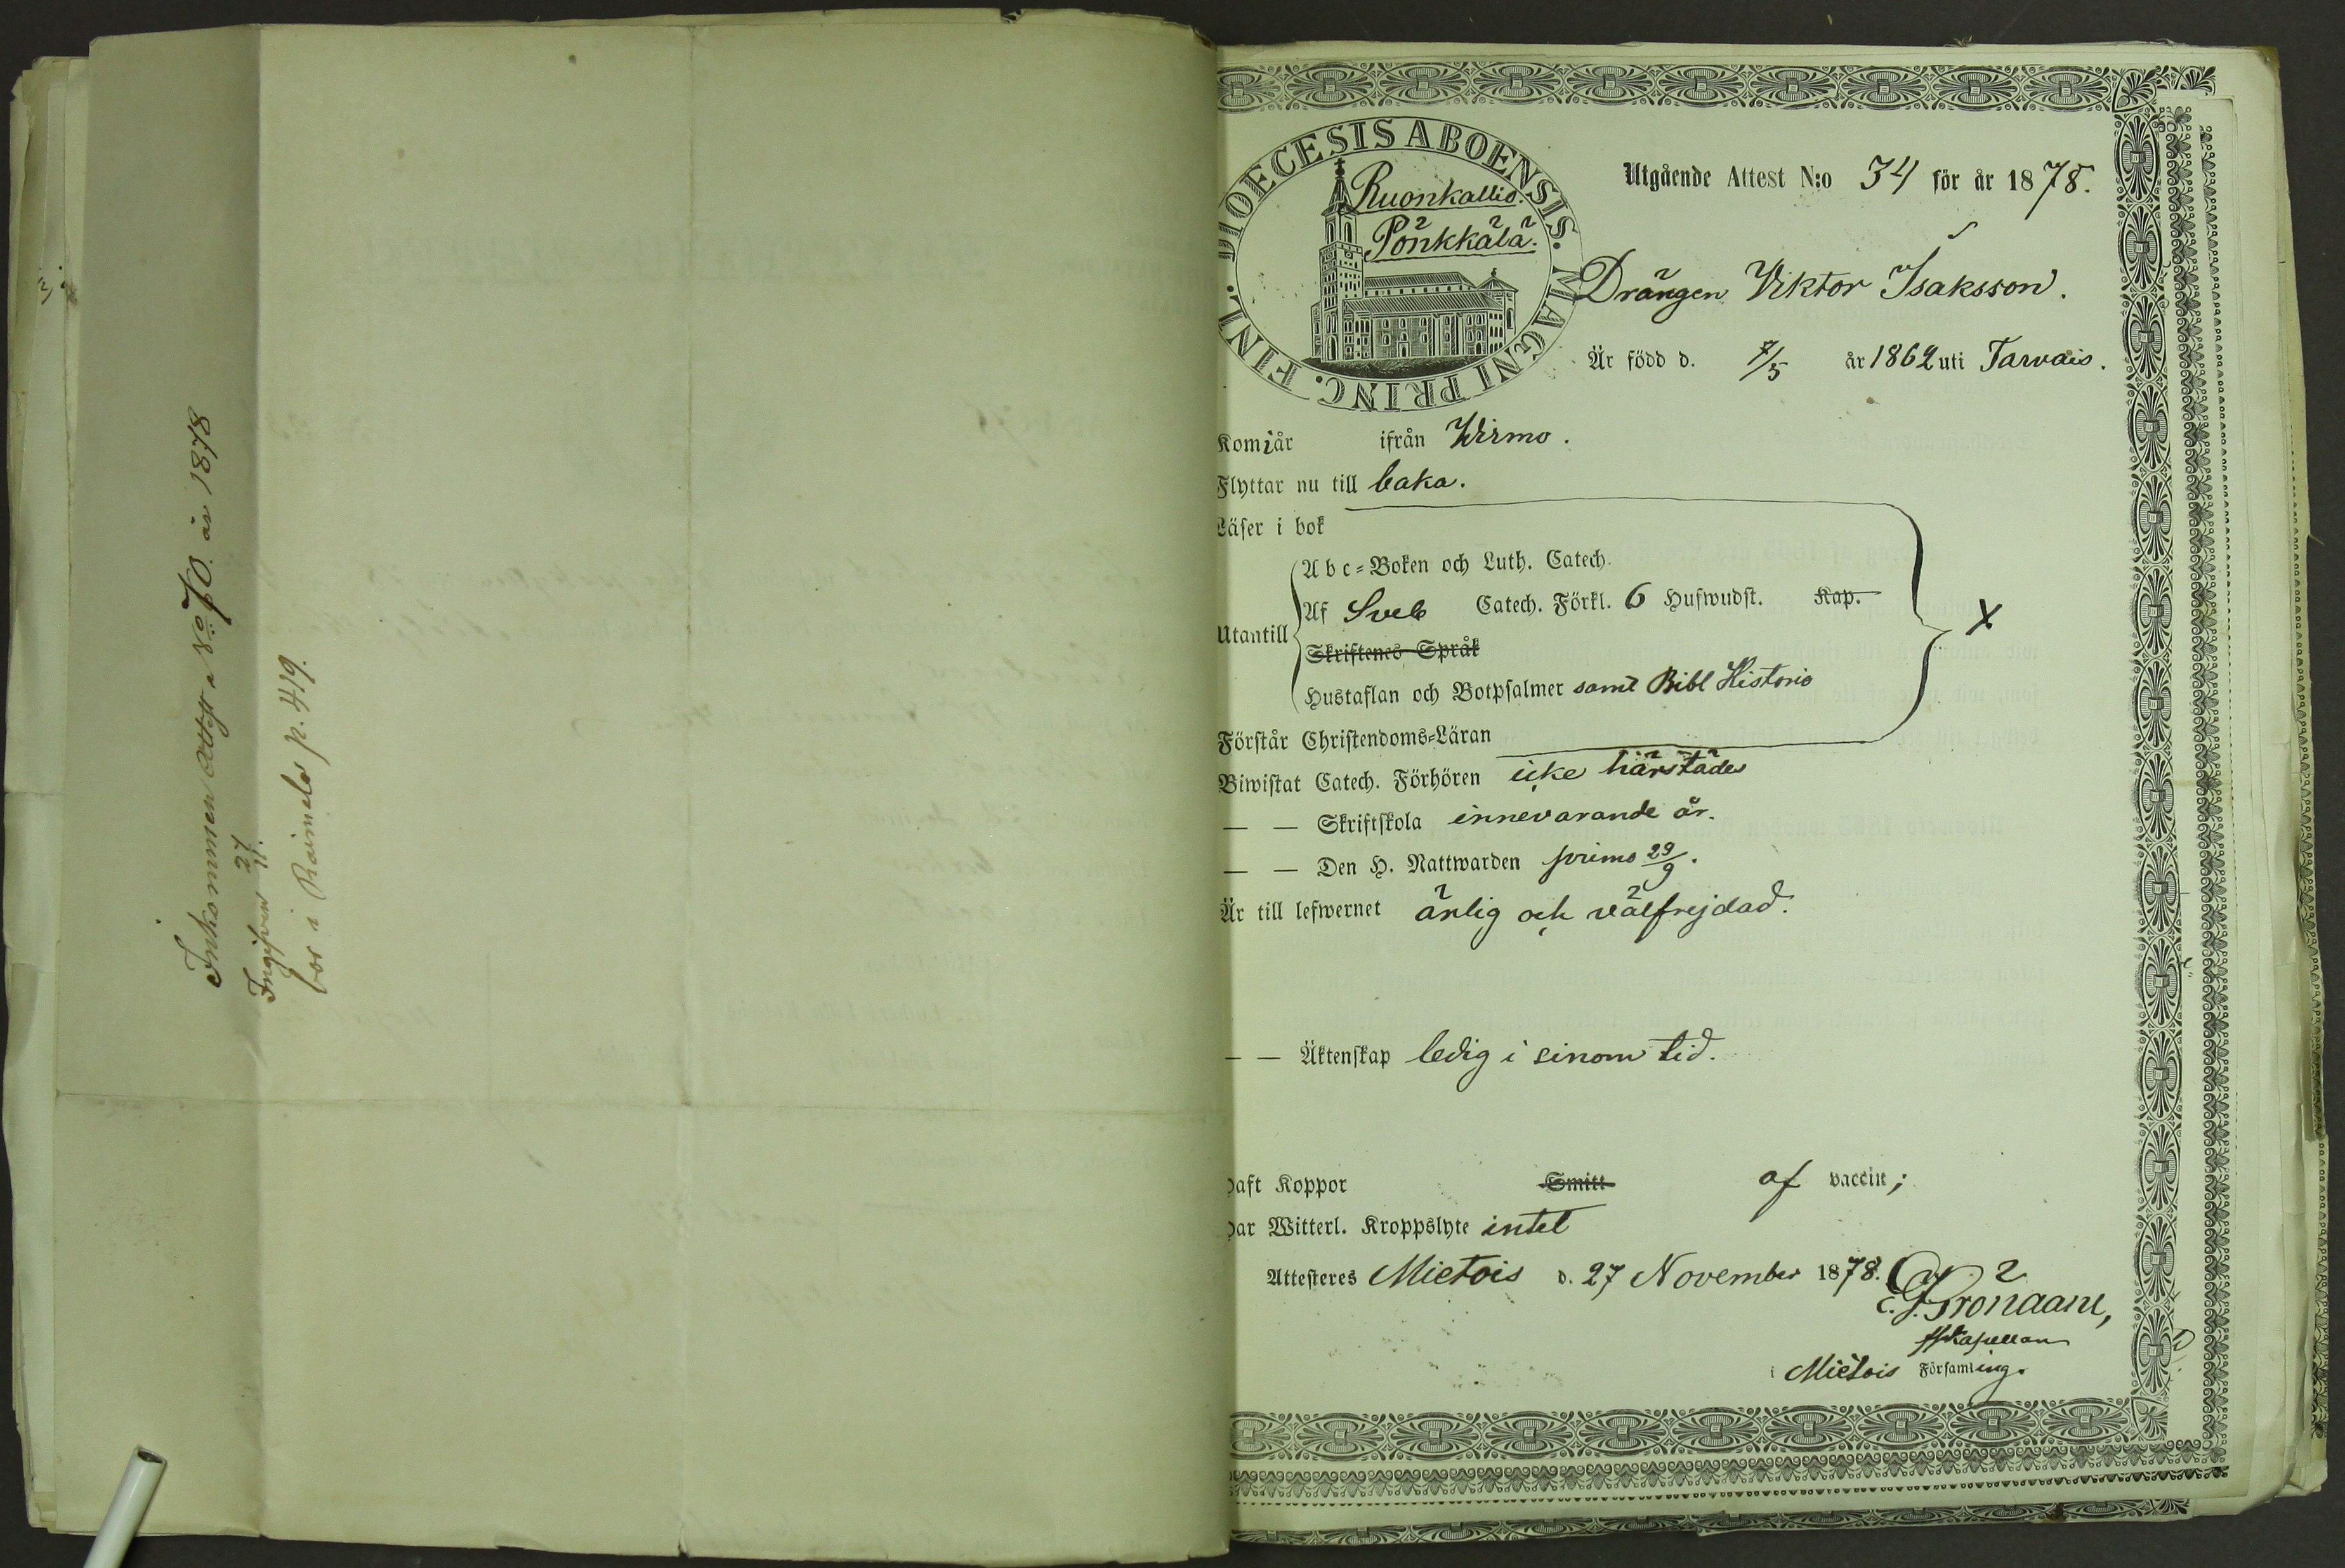 Inkommen Attest No 70. år 1878
Ingifven 27/11.
bor i Raimela p. 419.
DIOECESIS ABOENSIS. MAGNI PRINC. FINL.
Ruonkallio.
Pönkkälä.
Utgående Attest N:o 34 för år 1878.
Drängen Viktor Isaksson.
Är född d. 7/5 år 1862 uti Tarvais.
Kom i år ifrån Wirmo.
Flyttar nu till baka.
Läser i bok
Abc-Boken och Luth. Catech.
Utantill
Af Sveb Catech. Förkl. 6 Hufwudst. Kap.
Skriftenes Språk
Hustaflan och Botpsalmer samt Bibl Historia
X
Förstår Christendoms-Läran
Biwistat Catech. Förhören icke härstädes
— — Skriftskola innevarande år.
— — Den H. Nattwarden primo 29/9.
Är till lefwernet ärlig och välfrejdad.
— — Äktenskap ledig i sinom tid.
Haft Koppor Smitt af vaccin;
Har Witterl. Kroppslyte intet
Attesteres Mietois d. 27 November 1878.
Kapellan
i Mietois Församling.